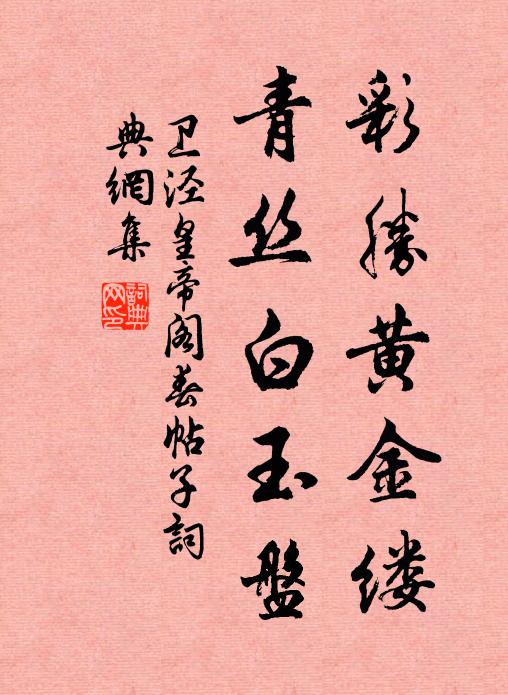 彩胜黄金缕
青丝白玉盤
卫泾皇帝阁春帖子詞
典網集
詞典网印